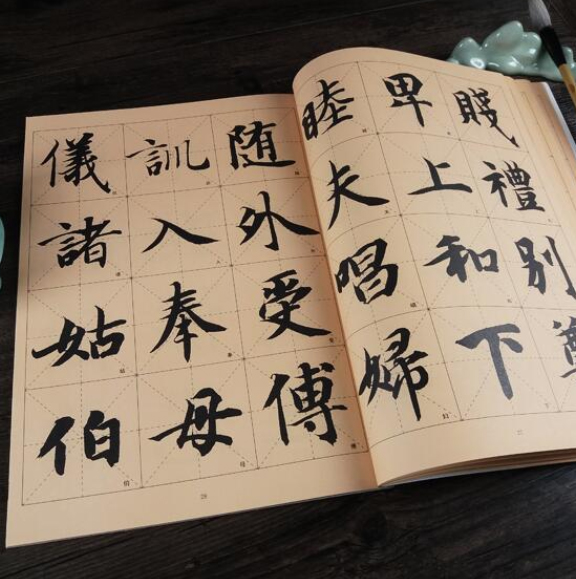 賤禮别尊
卑上和下
睦夫唱婦
随外受傅
訓入奉母
儀諸姑伯